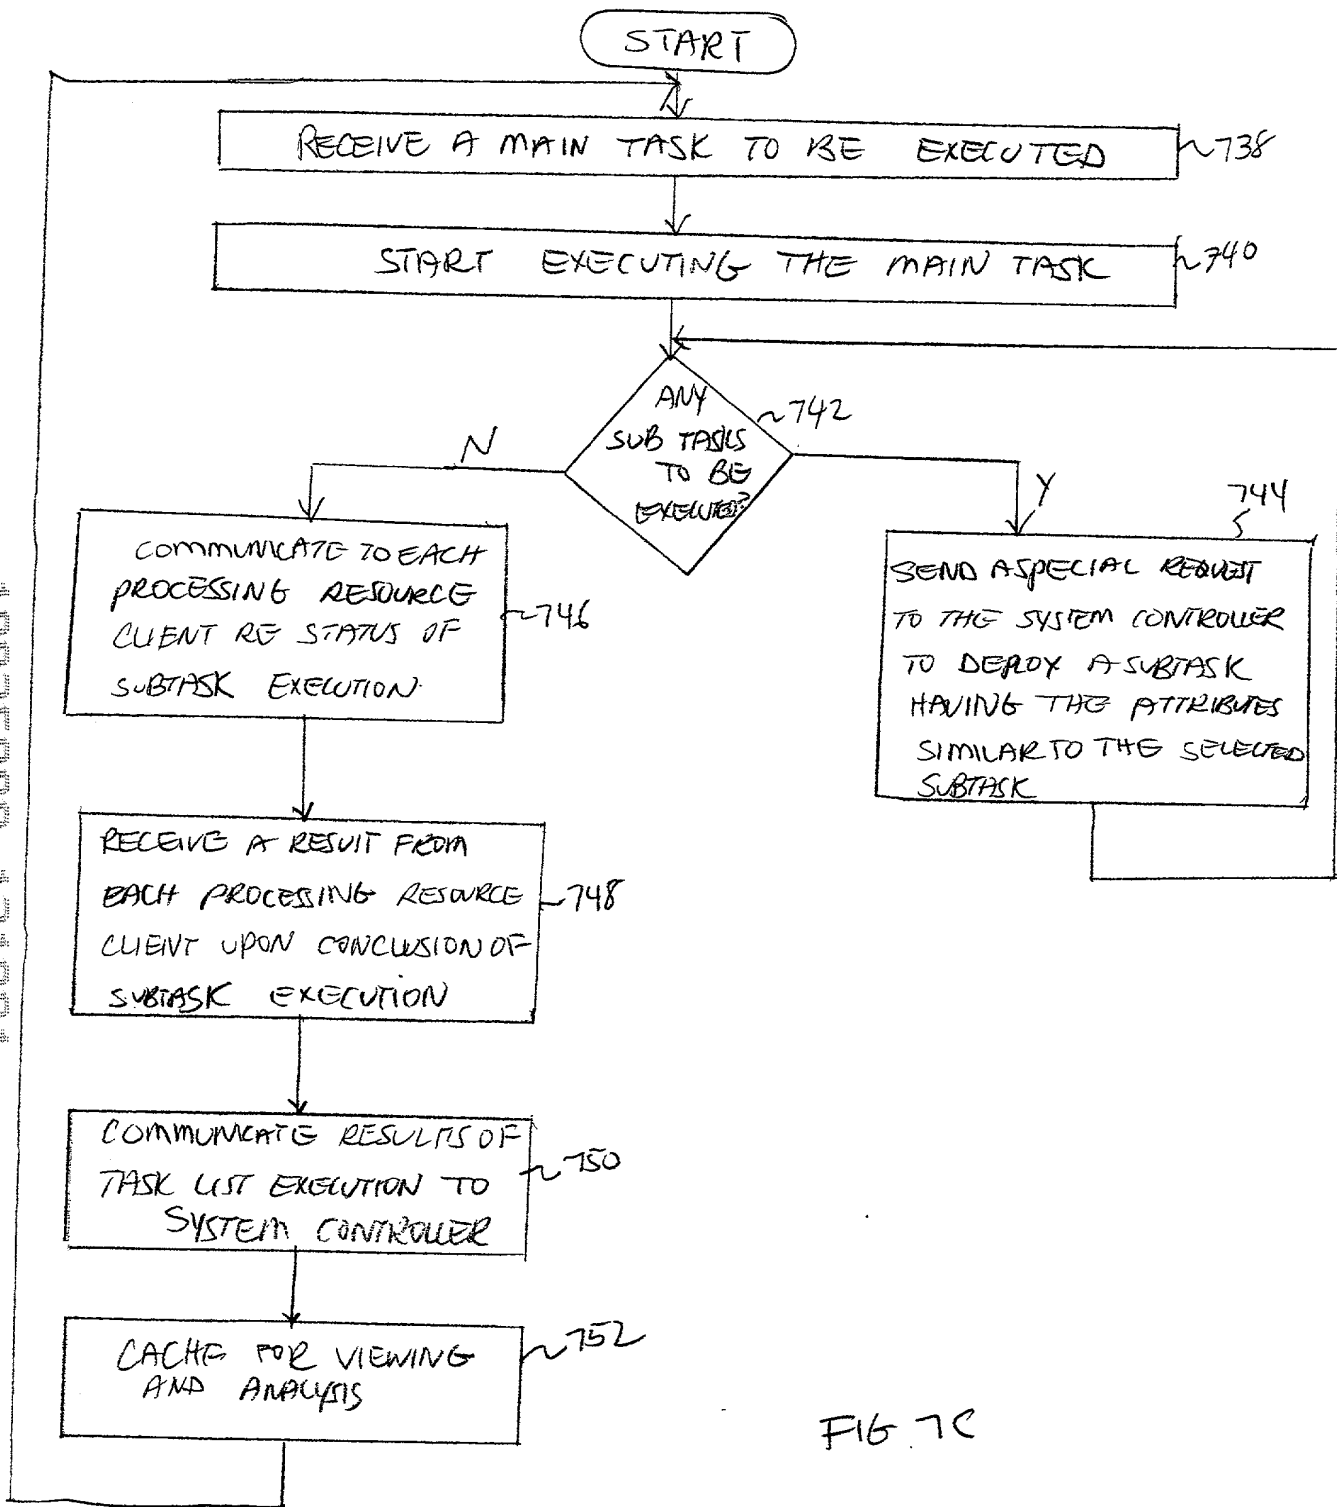 START
RECEIVE A MAIN TASK TO BE EXECUTED
738
START EXECUTING THE MAIN TASK
740
ANY
SUB TASKS
TO BE
EXECUTED?
742
N
Y
744
COMMUNICATE TO EACH
PROCESSING RESOURCE
CLIENT RE STATUS OF
SUBTASK EXECUTION.
746
SEND A SPECIAL REQUEST
TO THE SYSTEM CONTROLLER
TO DEPLOY A SUBTASK
HAVING THE ATTRIBUTES
SIMILAR TO THE SELECTED
SUBTASK
RECEIVE A RESULT FROM
EACH PROCESSING RESOURCE
CLIENT UPON CONCLUSION OF
SUBTASK EXECUTION
748
COMMUNICATE RESULTS OF
TASK LIST EXECUTION TO
SYSTEM CONTROLLER
750
CACHE FOR VIEWING
AND ANALYSIS
752
FIG 7C